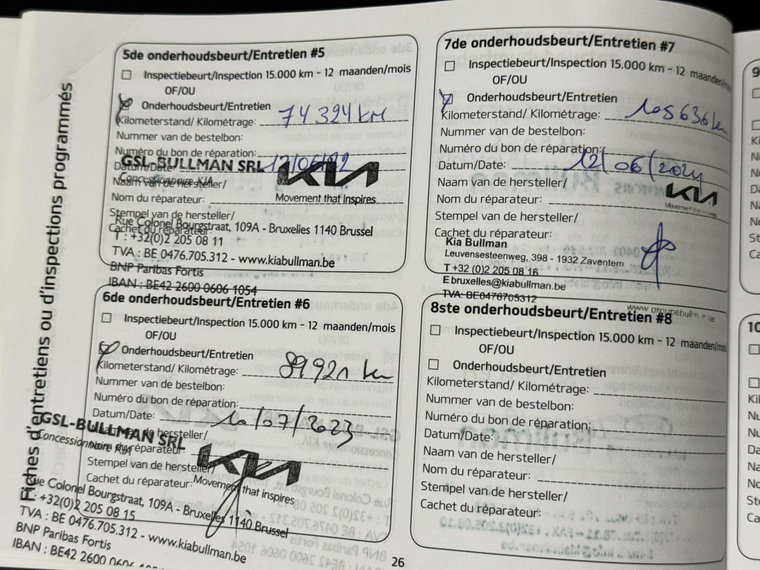 Fiches d'entretiens ou d'inspections programmés
5de onderhoudsbeurt/Entretien #5
Inspectiebeurt/Inspection 15.000 km - 12 maanden/mois
OF/OU
Onderhoudsbeurt/Entretien
Kilometerstand/ Kilométrage: 74324 KM
Nummer van de bestelbon:
Numéro du bon de réparation:
Datum/Date:
GSL-BULLMAN SRL
Concessionnaire KIA
KIA
Movement that inspires
Naam van de hersteller/
Nom du réparateur:
Stempel van de hersteller/
Cachet du réparateur:
Rue Colonel Bourgstraat, 109A - Bruxelles 1140 Brussel
T : +32(0)2 205 08 11
TVA : BE 0476.705.312 - www.kiabullman.be
BNP Paribas Fortis
IBAN : BE42 2600 0606 1054
6de onderhoudsbeurt/Entretien #6
Inspectiebeurt/Inspection 15.000 km - 12 maanden/mois
OF/OU
Onderhoudsbeurt/Entretien
Kilometerstand/ Kilométrage: 89921 km
Nummer van de bestelbon:
Numéro du bon de réparation:
Datum/Date: 10/07/2023
GSL-BULLMAN SRL
Concessionnaire KIA
KIA
Movement that inspires
Naam van de hersteller/
Nom du réparateur:
Stempel van de hersteller/
Cachet du réparateur:
Rue Colonel Bourgstraat, 109A - Bruxelles 1140 Brussel
T : +32(0)2 205 08 15
TVA : BE 0476.705.312 - www.kiabullman.be
BNP Paribas Fortis
IBAN : BE42 2600 0606 1054
7de onderhoudsbeurt/Entretien #7
Inspectiebeurt/Inspection 15.000 km - 12 maanden/mois
OF/OU
Onderhoudsbeurt/Entretien
Kilometerstand/ Kilométrage: 105636 km
Nummer van de bestelbon:
Numéro du bon de réparation:
Datum/Date: 12/06/2024
Naam van de hersteller/
Nom du réparateur:
KIA
Movement that inspires
Stempel van de hersteller/
Cachet du réparateur:
Kia Bullman
Leuvensesteenweg, 398 - 1932 Zaventem
T +32 (0)2 205 08 16
E bruxelles@kiabullman.be
TVA: BE0476705312
www.groupebullman.be
8ste onderhoudsbeurt/Entretien #8
Inspectiebeurt/Inspection 15.000 km - 12 maanden/mois
OF/OU
Onderhoudsbeurt/Entretien
Kilometerstand/ Kilométrage:
Nummer van de bestelbon:
Numéro du bon de réparation:
Datum/Date:
Naam van de hersteller/
Nom du réparateur:
Stempel van de hersteller/
Cachet du réparateur:
26